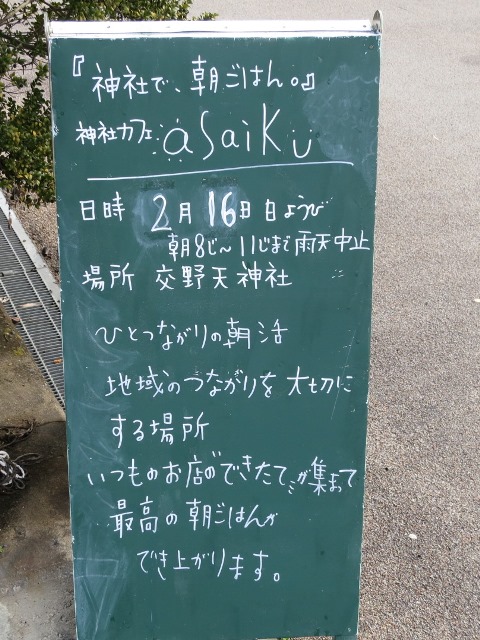 『神社で、朝ごはん。』
神社カフェ asaiku
日時 2月16日 日ようび
朝8じ〜11じまで雨天中止
場所 交野天神社
ひとつながりの朝活
地域のつながりを大切に
する場所
いつものお店の"できたて"が集まって
最高の朝ごはんが
でき上がります。